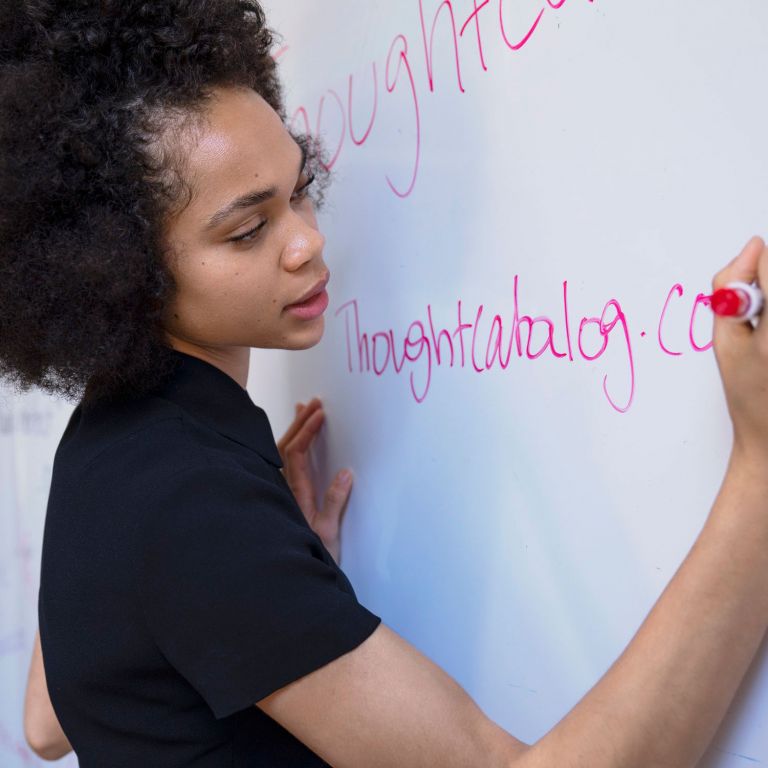 houghtCa
ThoughtCatalog.co